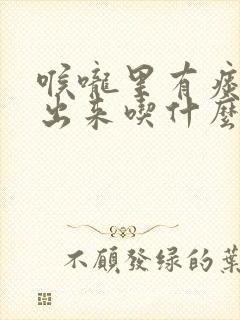 喉嚨里有痰
出来喫什麼
不願發绿的葉